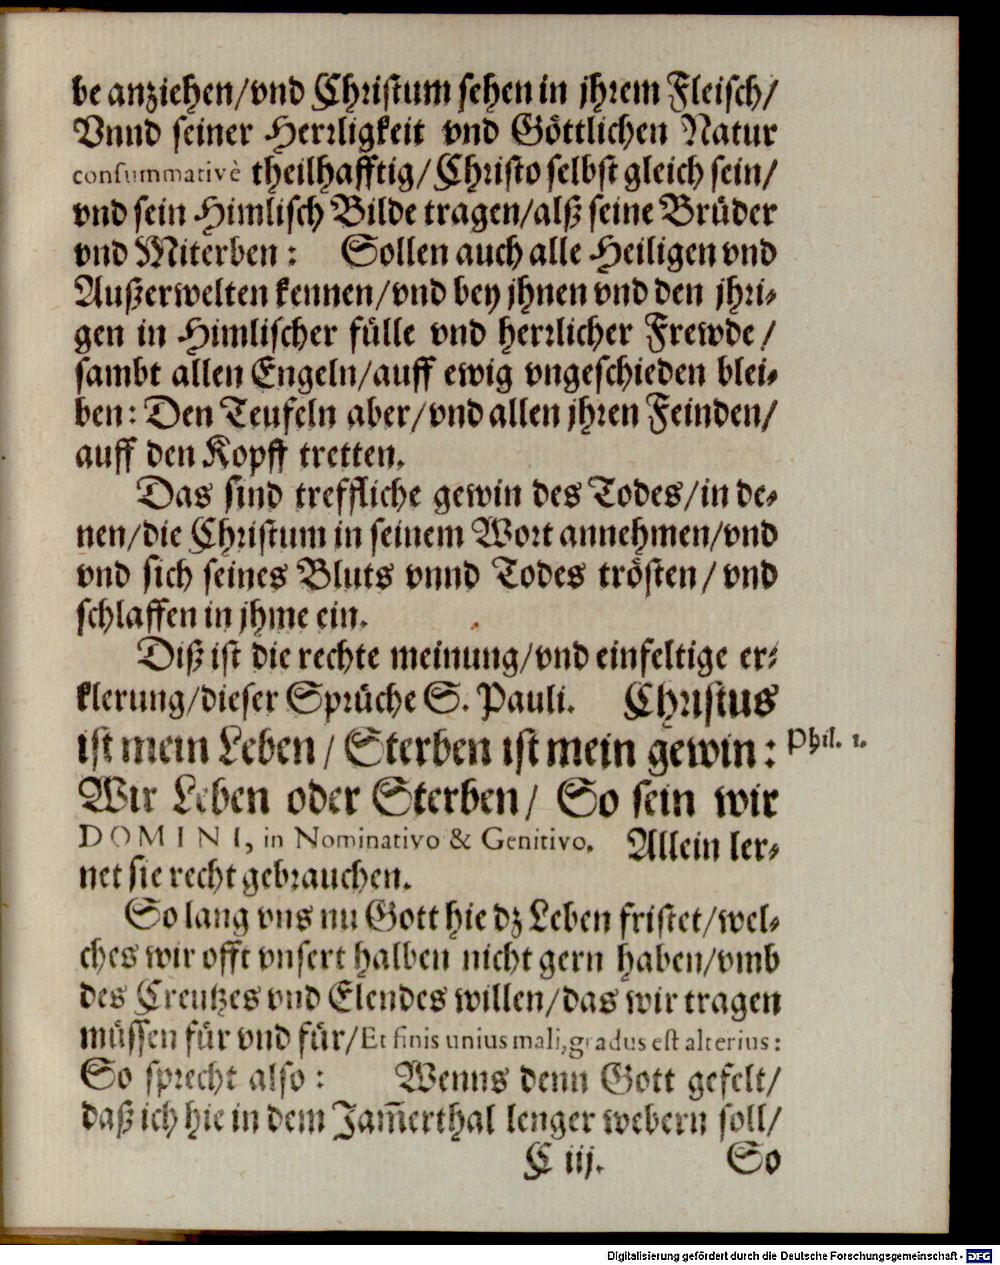 be anziehen/vnd Christum sehen in jhrem Fleisch/
Vnnd seiner Herrligkeit vnd Göttlichen Natur
consummativè theilhafftig/Christo selbst gleich sein/
vnd sein Himlisch Bilde tragen/alß seine Brüder
vnd Miterben: Sollen auch alle Heiligen vnd
Außerwelten kennen/vnd bey jhnen vnd den jhri-
gen in Himlischer fülle vnd herrlicher Frewde/
sambt allen Engeln/auff ewig vngeschieden blei-
ben: Den Teufeln aber/vnd allen jhren Feinden/
auff den Kopff tretten.
Das sind treffliche gewin des Todes/in de-
nen/die Christum in seinem Wort annehmen/vnd
vnd sich seines Bluts vnnd Todes trösten/vnd
schlaffen in jhme ein.
Diß ist die rechte meinung/vnd einfeltige er-
klerung/dieser Sprüche S. Pauli. Christus
ist mein Leben/Sterben ist mein gewin: Phil. 1.
Wir Leben oder Sterben/ So sein wir
DOMINI, in Nominativo & Genitivo. Allein ler-
net sie recht gebrauchen.
So lang vns nu Gott hie dz Leben fristet/wel-
ches wir offt vnsert halben nicht gern haben/vmb
des Creutzes vnd Elendes willen/das wir tragen
müssen für vnd für/Et finis unius mali, gradus est alterius:
So sprecht also: Wenns denn Gott gefelt/
daß ich hie in dem Jam̄erthal lenger webern soll/
C iij. So
Digitalisierung gefördert durch die Deutsche Forschungsgemeinschaft - DFG